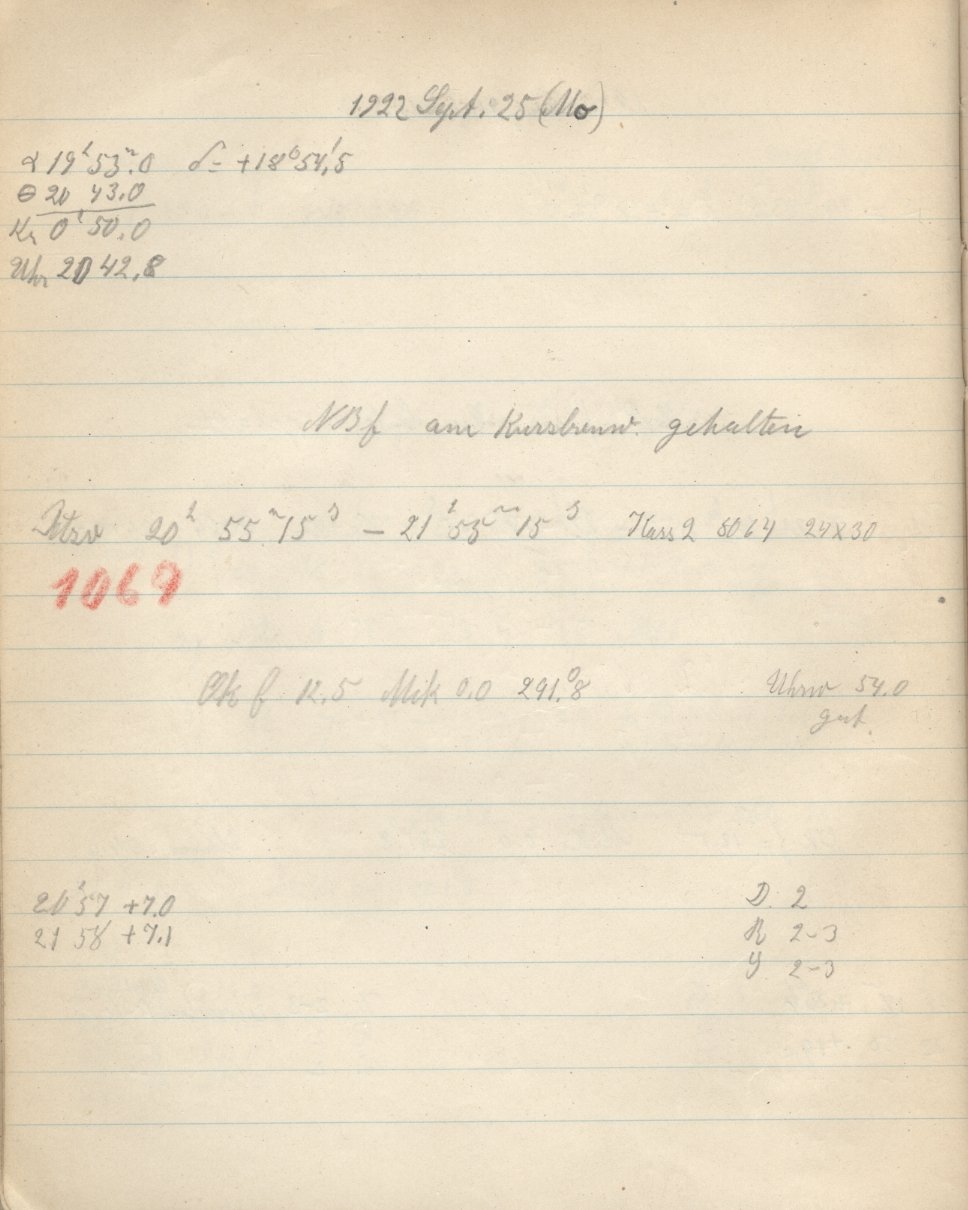 1922 Sept. 25 (Mo)
α 19ʰ 53ᵐ.0 δ= +18° 54',5
Θ 20 43.0
Kr 0ʰ 50.0
Uhr 20 42,8
am Kurzbrennw. gehalten
20ʰ 55ᵐ 15ˢ – 21ʰ 55ᵐ 15ˢ Kass 2 8064 24x30
1069
Ok f 12.5 Mik 0.0 291.°8 Uhrw 54.0
gut.
20ʰ57 +7.0
21 58 +7.1
D 2
R 2-3
2-3